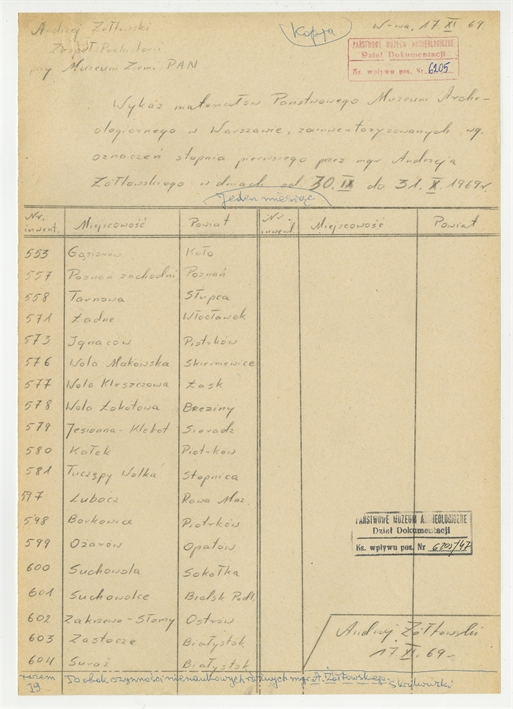 Andrzej Żółtowski
Kopja
W-wa, 17 XI 69
Zespół Pochodzeń
przy Muzeum Ziemi PAN
PAŃSTWOWE MUZEUM ARCHEOLOGICZNE
Dział Dokumentacji
Ks. wpływu poz. Nr 6205
Wykaz materiałów Państwowego Muzeum Arche-
ologicznego w Warszawie, zainwentaryzowanych wg.
oznaczeń stopnia pierwszego przez mgr Andrzeja
Żółtowskiego w dniach od 30. IX do 31. X. 1969r.
jeden miesiąc
Nr. inwent. Miejscowość Powiat Nr. inwent. Miejscowość Powiat
553 Gąsiorów Koło
557 Poznań zachodni Poznań
558 Tarnowa Słupca
571 Ładne Włocławek
573 Ignaców Piotrków
576 Wola Makowska Skierniewice
577 Wola Kleszczowa Łask
578 Wola Łokotowa Brzeziny
579 Jesionna - Sieradz
580 Kołek Piotrków
581 Tuczępy Wolka Stopnica
597 Lubocz Rawa Maz
598 Borkowice Piotrków
PAŃSTWOWE MUZEUM ARCHEOLOGICZNE
Dział Dokumentacji
599 Ożarów Opatów
Ks. wpływu poz. Nr 6205/47
600 Suchowola Sokółka
601 Suchowolce Bielsk Podl
602 Zakrzewo-Słomy Ostrów
Andrzej Żółtowski
603 Zastocze Białystok
17 XI. 69-
604 Suraż Białystok
razem 19 To obok czynności nienaukowych różnych mgr. A. Żółtowskiego.